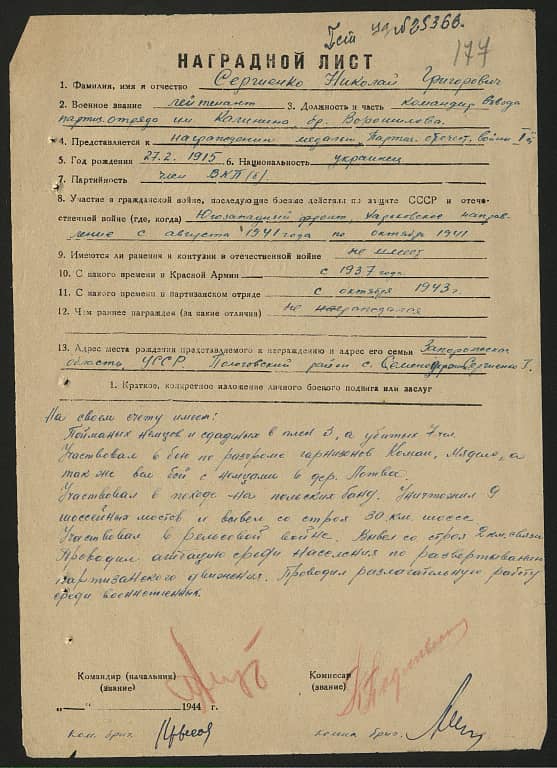 177
НАГРАДНОЙ ЛИСТ
1. Фамилия, имя и отчество Сергиенко Николай Григорович
2. Военное звание лейтенант 3. Должность и часть командир взвода
партиз. отряда им. Калинина, бр. Ворошилова.
4. Представляется к награждению медали "Партиз. отечест. войны" II
5. Год рождения 27.2. 1915 6. Национальность украинец
7. Партийность член ВКП(б)
8. Участие в гражданской войне, последующие боевые действия по защите СССР и отече-
ственной войне (где, когда) Югозападный фронт, Харьковское направ-
ление с августа 1941 года по октября 1941
9. Имеются ли ранения и контузии в отечественной войне не имеет
10. С какого времени в Красной Армии с 1937 года
11. С какого времени в партизанском отряде с октября 1943 г.
12. Чем раннее награжден (за какие отличия) не награждался
13. Адрес места рождения представляемого к награждению и адрес его семьи Запорожская
область, УССР Пологовский район с.
1. Краткое, конкретное изложение личного боевого подвига или заслуг
На своем счету имеет:
Пойманых немцев и сданных в плен 3, а убитых 7 чел
Участвовал в бою по разгрому гарнизонов Комаи, Мядело, а
так же вел бой с немцами в дер.
Участвовал в походе на польских банд. Уничтожил 9
шоссейных мостов и вывел со строя 30 км. шоссе
Участвовал в рельсовой войне. Вывел со строя 2 км. связи
Проводил агитацию среди населения по развертыванию
партизанского движения. Проводил разлагательную работу
среди военнопленных.
Командир (начальник) Комиссар
(звание) (звание)
„— “ 1944 г.
Ком. бриг. комис. бриг.